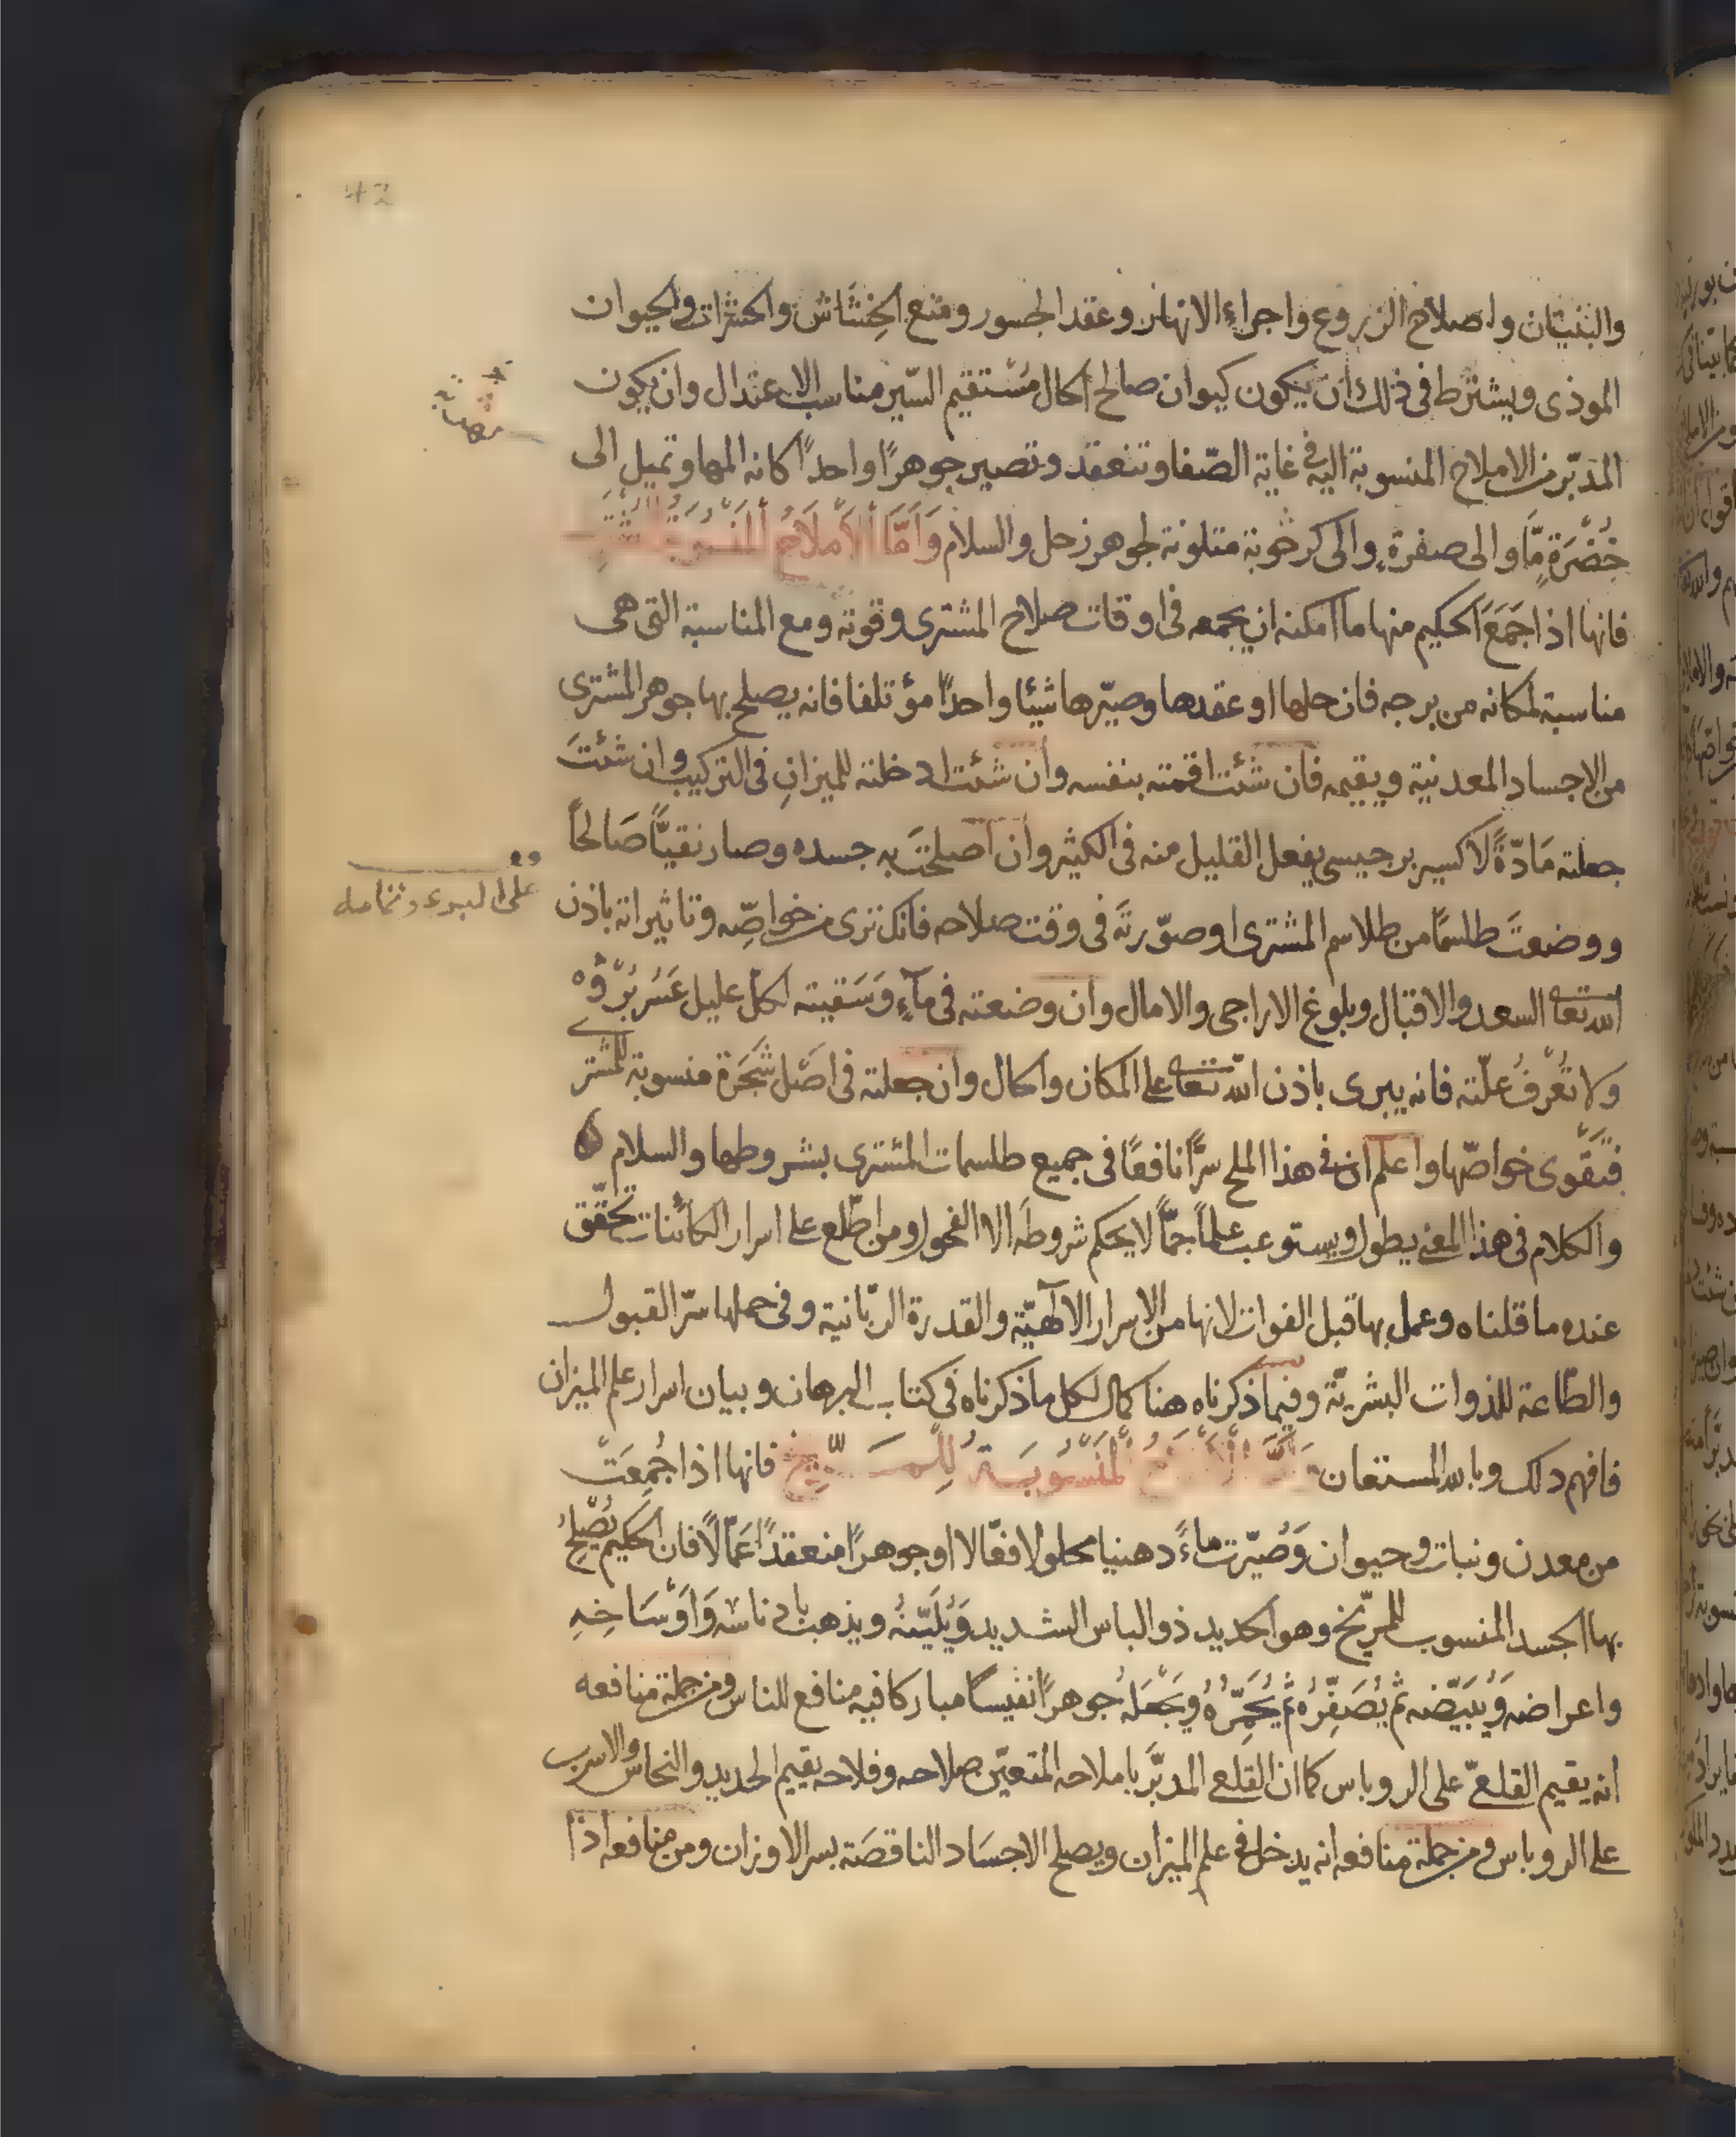 42
والبنيان واصلاح الزروع واجراء الانهار وعقد الجسور ومنع الخشاش والحشرات والحيوان
الموذى ويشترط فى ذلك ان يكون كيوان صالح الحال مُستقيم السّير مناسب الاعتدال وان يكون
المدبّر من الاملاح المنسوبة اليه فى غاية الصّفا وتنعقد وتصير جوهرًا واحدًا كانه المها وتميل الى
خُضْرَةٍ مّا والى صفرةٍ والى متلونة لجوهر زحل والسلام وَاَمَّا الاَملَاحُ المَنسُوبَةُ للمُشْتَرِى
فانها اذا جَمَعَ الحكيم منها ما امكنه ان يجمعه فى اوقات صلاح المشترى وقوته ومع المناسبة التى هى
مناسبة لمكانه من برجه فان حلها او عقدها وصيّرها شيئا واحدًا مؤتلفا فانه يصلح بها جوهر المشترى
من الاجساد المعدنية ويقيمه فان شئت اقمته بنفسه وان شئت ادخلته للميزانِ فى التركيب وان شئتَ
جعلته مَادّةً لاكسير برجيسى يفعل القليل منه فى الكثير وان اصلحتَ به جسده وصار نقيًّا صَالحًا
ووضعتَ طلسمًا من طلاسم المشترى او صوّرتَه فى وقت صلاحه فانك ترى من خواصّه وتاثيراته باذن
الله تعالى السعد والاقبال وبلوغ الاراجى والامال وان وضعته فى مآءٍ وَسَقيته لكل عليل عَسُر بُرّؤه
ولا تُعْرفُ علّته فانه يبرى باذن الله تعالى على المكان والحال وان جعلته فى اصْل شَجَرَة منسوبة للمشترى
فتَقوى خواصّها واعلم ان فى هذا الملح سرًّا نافعًا فى جميع طلسمات المشترى بشروطها والسلام
والكلام فى هذا المعنى يطول ويستوعب علمًا جمًّا لا يحكم شروطه الا الفحول ومن اطّلع على اسرار الكائنات تحقّق
عنده ما قلناه وعمل بها قبل الفوات لانها من الاسرار الالٰهيّة والقدرة الربّانية وفى حملها سرّ القبول
والطّاعة للذوات البشريّة وفيما ذكرناه هنا كمال لكل ما ذكرناه فى كتاب البرهان وبيان اسرار علم الميزان
فافهم ذلك وبالله المستعان وَاَمَّا الاَملَاحُ المَنْسُوبَةُ لِلْمِرّيخ فانها اذا جُمِعَتْ
من معدن ونبات وحيوان وَصُيّرت ماءً دهنيا محلولا فعّالا او جوهرًا منعقدًا عَمّالًا فان الحكيم يُصْلحُ
بها الجسد المنسوب للمرّيخ وهو الحديد ذو الباس الشديد وَيُلَيّنهُ ويذهب بادناسه وَاَوْسَاخِهِ
واعراضه وَيُبَيّضه ثم يُصَفِّرُه ثم يُحَمّرُهُ ويَجْعَلهُ جوهرًا نفيسًا مباركا فيه منافع للناس ومن جملة منافعه
انه يقيم القلعىّ على الروباس كما ان القلعى المدبَّر باملاحه المتعيّن صلاحه وفلاحه يقيم الحديد والنحاس والاسرب
على الروباس ومن جملة منافعه انه يدخل فى علم الميزان ويصلح الاجسَاد الناقصَة بسر الاوزان ومن منافعه اذا